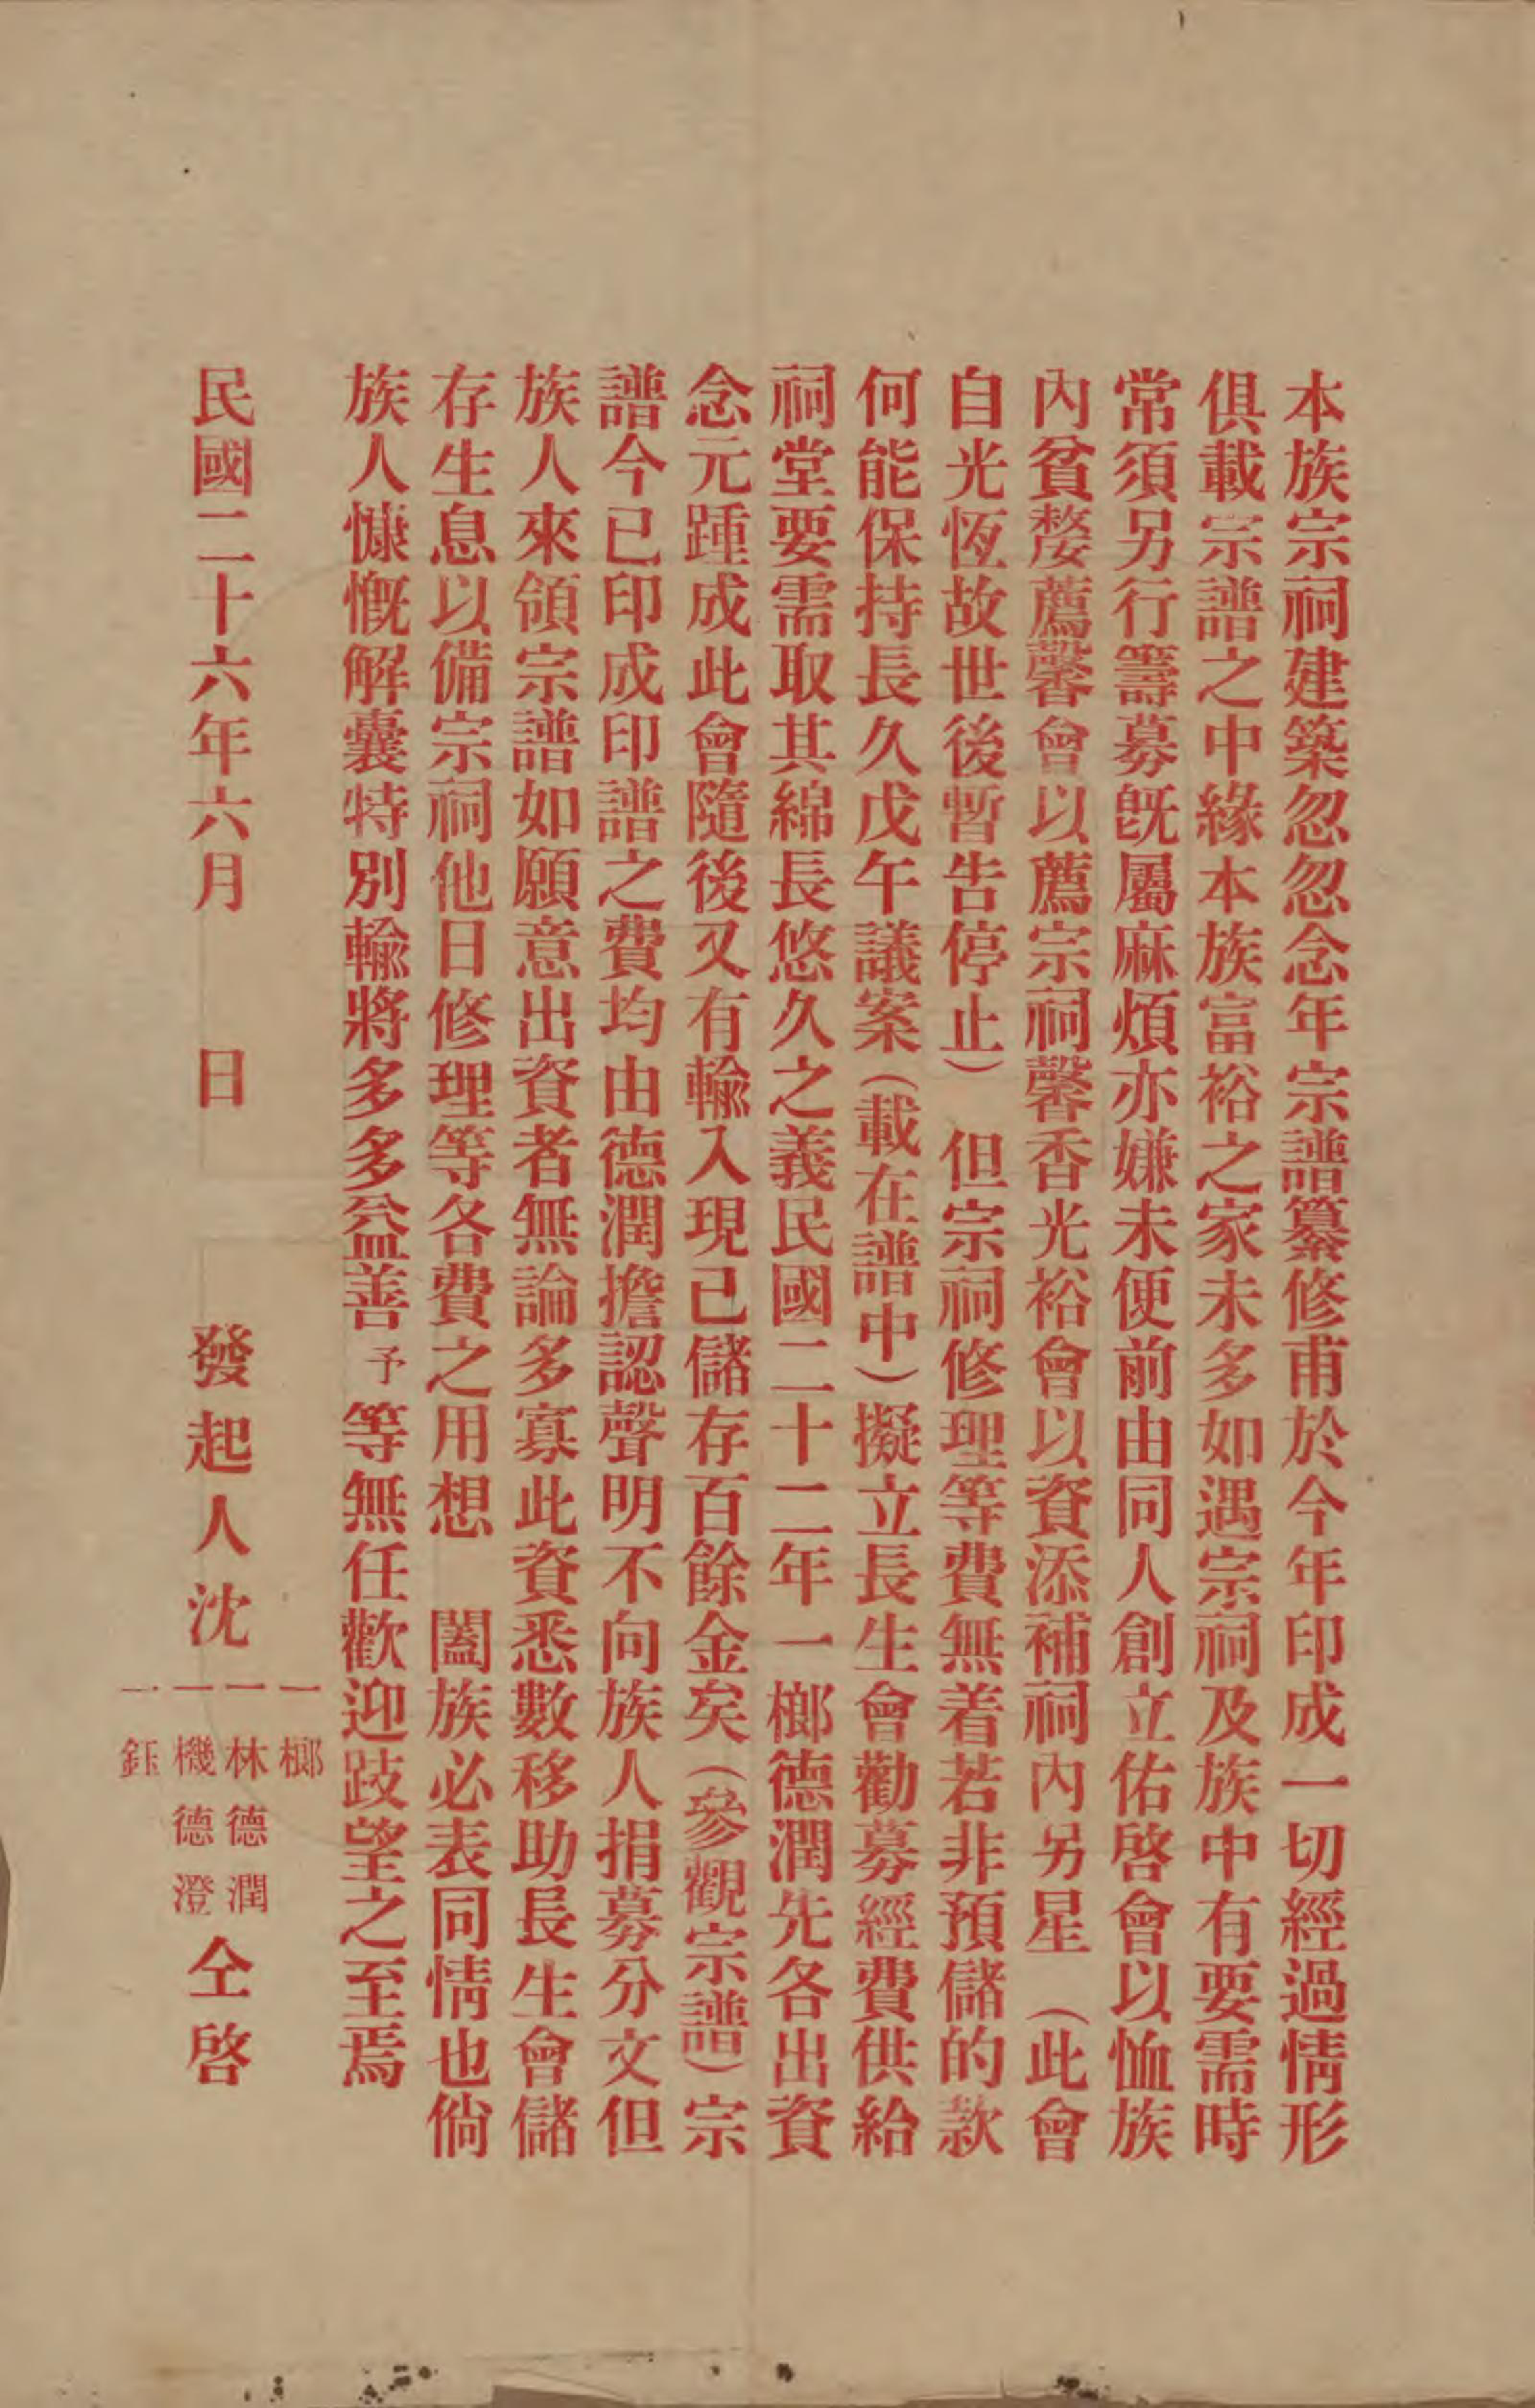 本族宗祠建築忽忽念年宗譜纂修甫於今年印成一切經過情形
俱載宗譜之中緣本族富裕之家未多如遇宗祠及族中有要需時
常須另行籌募旣屬麻煩亦嫌未便前由同人創立佑啓會以恤族
內貧嫠薦馨會以薦宗祠馨香光裕會以資添補祠內另星（此會
自光恆故世後暫告停止）但宗祠修理等費無着若非預儲的款
何能保持長久戊午議案（載在譜中）擬立長生會勸募經費供給
祠堂要需取其綿長悠久之義民國二十二年一榔德潤先各出資
念元踵成此會隨後又有輸入現已儲存百餘金矣（參觀宗譜）宗
譜今已印成印譜之費均由德潤擔認聲明不向族人捐募分文但
族人來領宗譜如願意出資者無論多寡此資悉數移助長生會儲
存生息以備宗祠他日修理等各費之用想　闔族必表同情也倘
族人慷慨解囊特別輸將多多益善予等無任歡迎跂望之至焉
民國二十六年六月　　日　　　發起人沈
一榔
一林德潤
一機德澄
一鈺
仝啓